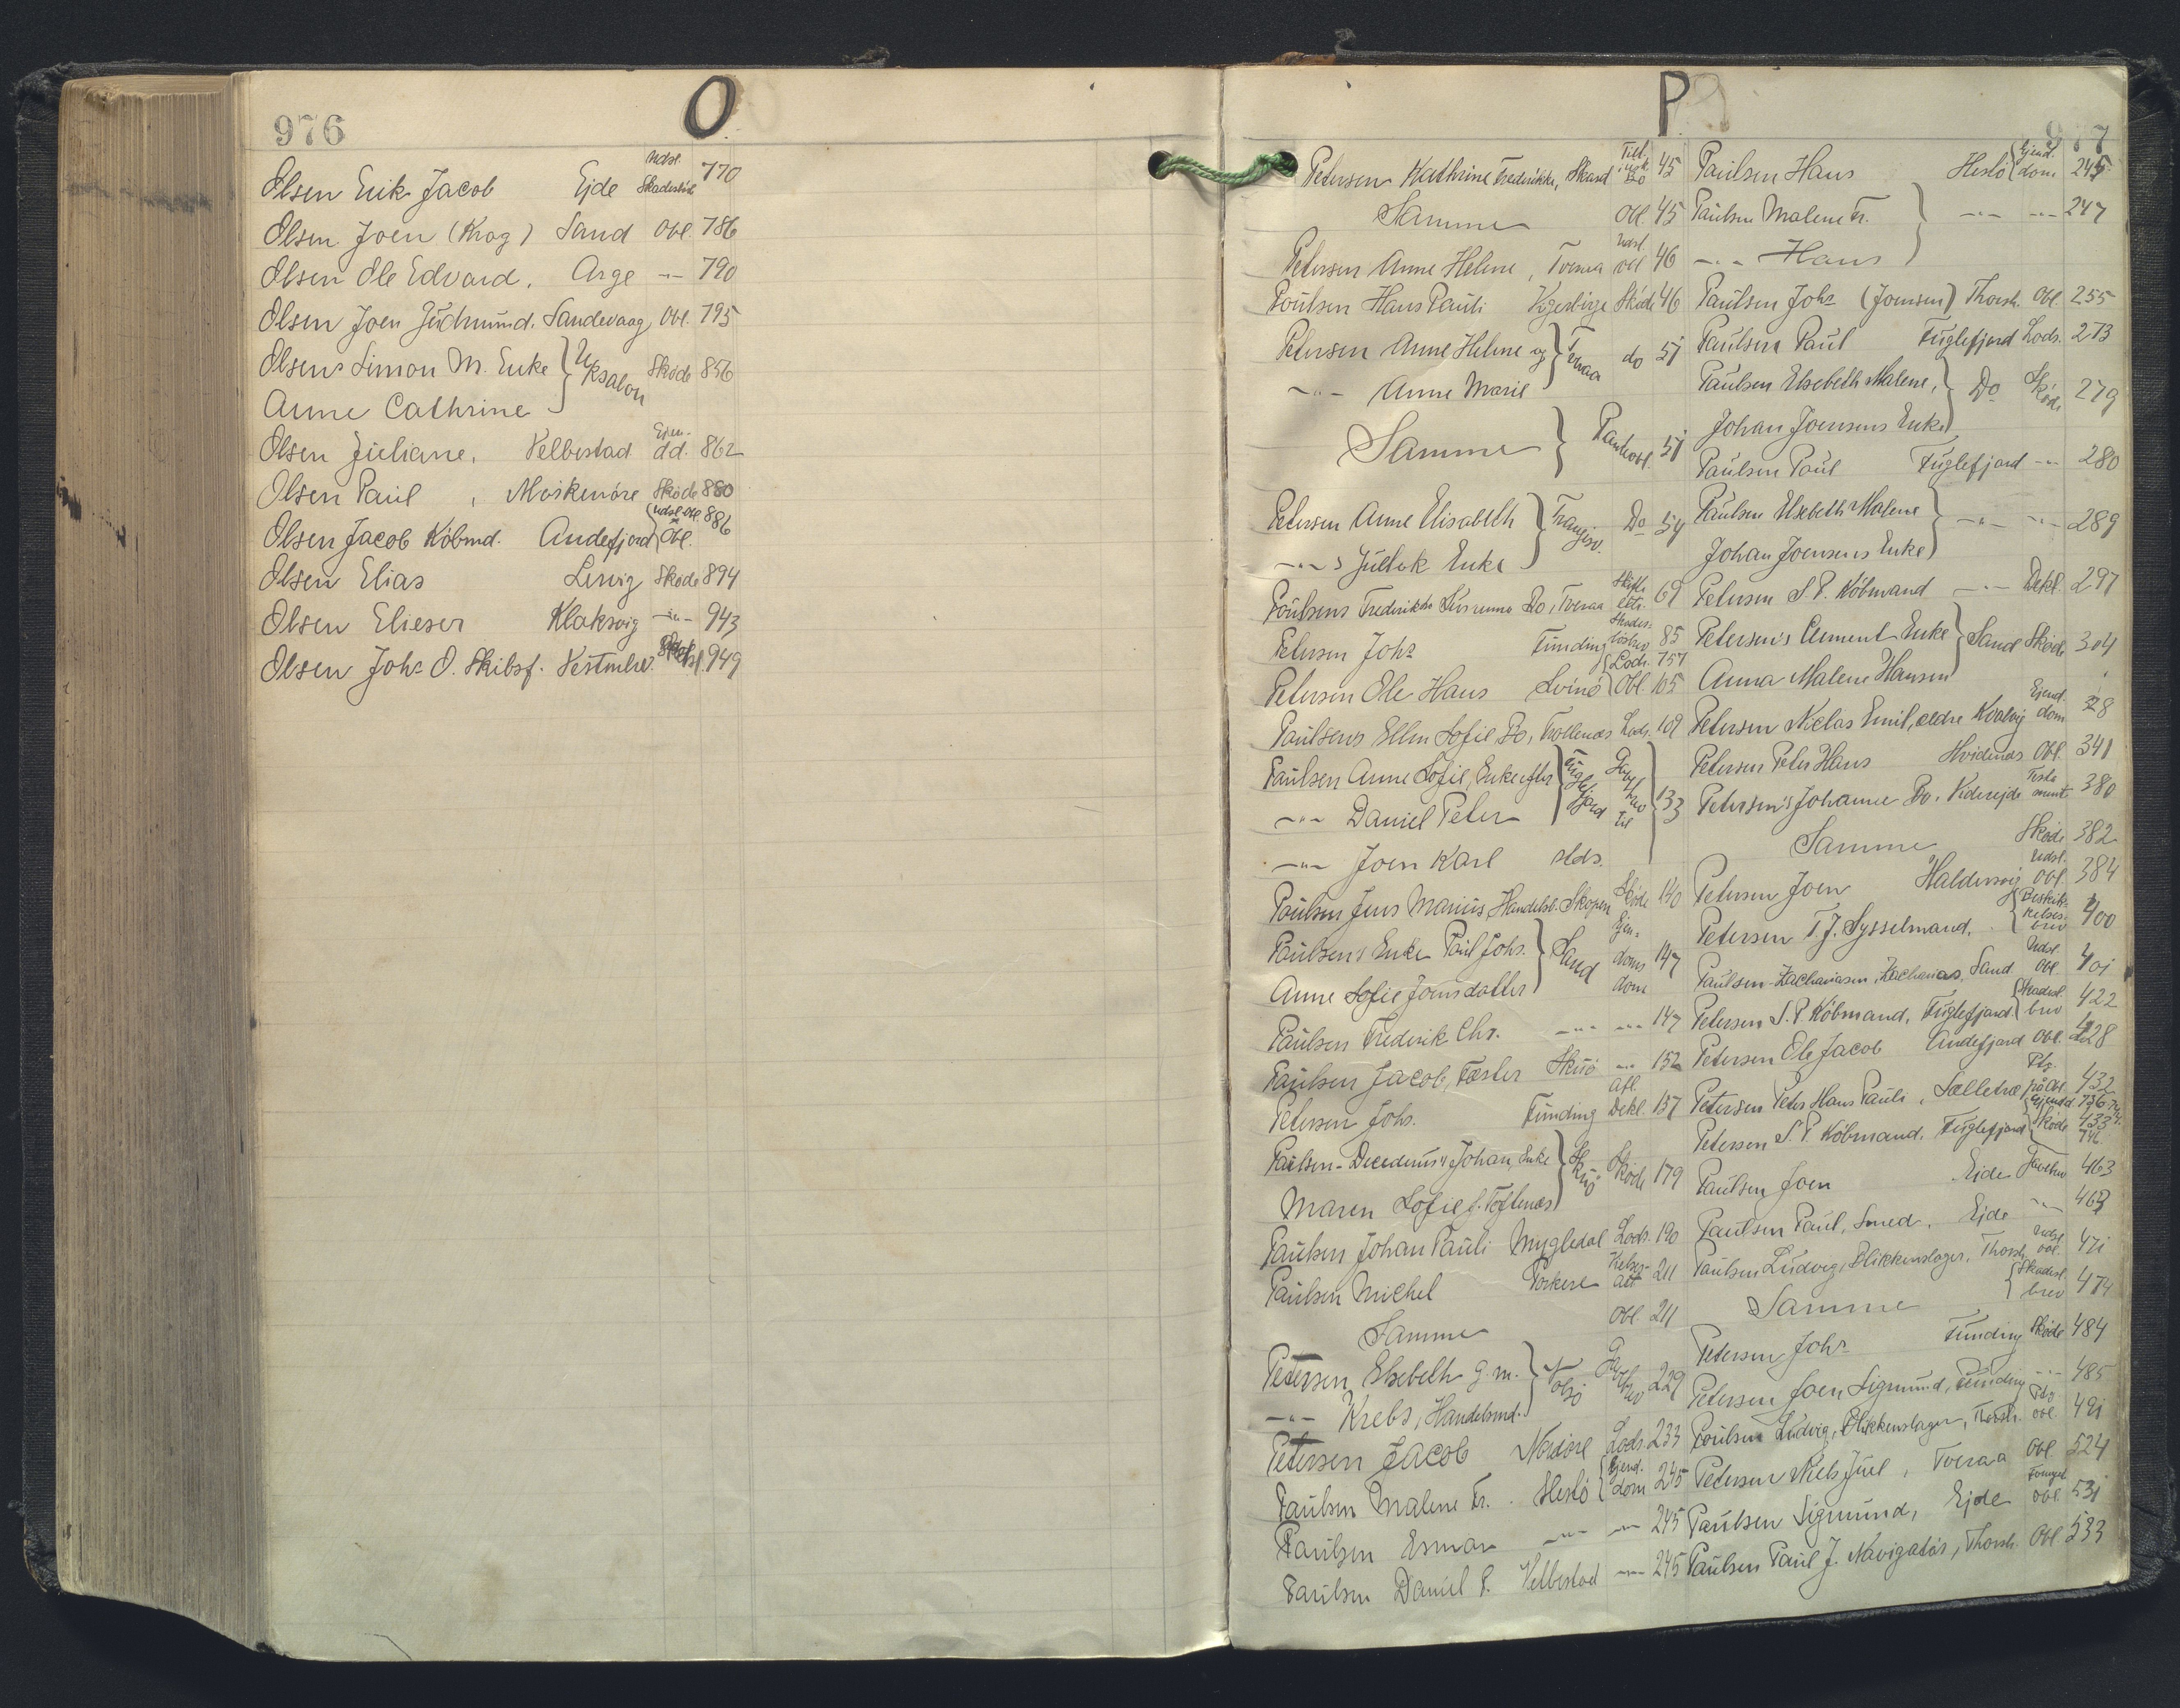 976
O
Olsen Erik Jacob Ejde Udsl. Skadesløsb 770
Olsen Joen (Krog) Sand Obl. 786
Olsen Ole Edvard, Arge -"- 790
Olsen Joen Gudmund. Sandevaag Obl. 795
Olsens Simon M. Enke } Skøde 856
Anne Cathrine
Olsen Juliane, Velbestad Ejen-dd. 862
Olsen Paul, Moskenøre Skøde 880
Olsen Jacob Købmd. Andefjord { udsl. Obl. Obl. 886
Olsen Elias Lervig Skøde 894
Olsen Elieser Klaksvig -"- 943
Olsen Johs O. Skibsf. Vestmhv. 949
P
977
Petersen Kathrine Frederikke, Skard Bo 45
Samme Obl 45
Petersen Anne Helene, Tveraa Udsl. obl 46
Poulsen Hans Pauli Skøde 46
Petersen Anne Helene og } Tveraa do 51
-"- Anne Marie
Samme } Panteobl. 51
Petersen Anne Elisabeth } Frangisv. Do 54
-"-s Enke
Poulsens Frederikke Susanna Bo, Tveraa Skifteextr. 69
Petersen Johs Funding Skadesløsbrev 85
Petersen Ole Hans Svinø { Lods. 757 Obl. 105
Paulsens Ellen Sofie Bo, Trollenæs Lods. 109
Paulsen Anne Sofie, Enke efter } Fuglefjord Gavebrev til } 133
-"- Daniel Peter
-"- Joen Karl slds.
Poulsen Jens Marius, Handelsb. Skopen Skøde 140
Paulsen's Enke Paul Johs. } Sand Ejendomsdom 147
Anne Sofie Joensdatter
Paulsen Frederik Chr. -"- -"- 147
Paulsen Jacob, Fæster Skuø -"- 152
Petersen Johs. Funding Afl. Dekl. 157
Paulsen-Decederus's Johan, Enke } Skuø Skøde 179
Maren Sofie f. Toftenæs
Paulsen Johan Pauli Mygledal Lods. 190
Paulsen Michel Porkere 211
Samme Obl. 211
Petersen Elsebeth g. m. } Nolsø Gavebrev 229
-"- Krebs, Handelsmd.
Petersen Jacob Nordøre Lods 233
Paulsen Malene Fr. Hestø { Ejend. dom 245
Paulsen Esmar -"- -"- 245
Paulsen Daniel P. Velbestad -"- 245
Paulsen Hans Hestø { Ejend. dom 245
Paulsen Malene Fr. } -"- -"- 247
-"- Hans
Paulsen Johs (Joensen) Thorsh. Obl. 255
Paulsen Paul Fuglefjord Lods. 273
Paulsen Elsebeth Malene, } Do Skøde 279
Johan Joensens Enke
Paulsen Paul Fuglefjord -"- 280
Paulsen Elsebeth Malene } -"- -"- 289
Johan Joensens Enke
Petersen S. P. Købmand -"- Dekl. 297
Petersen's Clement Enke } Sand Skøde 304
Anna Malene Hansen
Petersen Niclas Emil, ældre Kvalvig Ejend. dom 328
Petersen Peter Hans Hvidenæs Obl. 341
Petersen's Johanne Bo. Viderejde Testament 380
Samme Skøde 382
Petersen Joen Haldersvig Udsl. Obl. 384
Petersen T. J. Sysselmand. { Beskikkelsesbrev 400
Paulsen-Zachariasen, Zacharias, Sand Udsl. Obl. 401
Petersen S. P. Købmand, Fuglefjord { Skadesl. brev 422
Petersen Ole Jacob Andefjord Obl. 428
Petersen Peter Hans Pauli, Selletræ Ptg. på Obl. 432
Petersen S. P. Købmand, Fuglefjord { Skøde 433 746
Paulsen Joen Eide Gavebrev 463
Paulsen Paul, Smed, Ejde -"- 463
Paulsen Ludvig, Blikkenslager, Thorsh. Udsl. obl. 471
Samme { Skadesl. brev 474
Petersen Johs Funding Skøde 484
Petersen Joen Sigmund, Funding -"- 485
Poulsen Ludvig, Blikkenslager, Thorsh. obl. 491
Petersen Niels Juel, Tveraa Obl 524
Paulsen Sigmund, Ejde obl 531
Paulsen Paul J. Navigatør, Thorsh. Obl 533